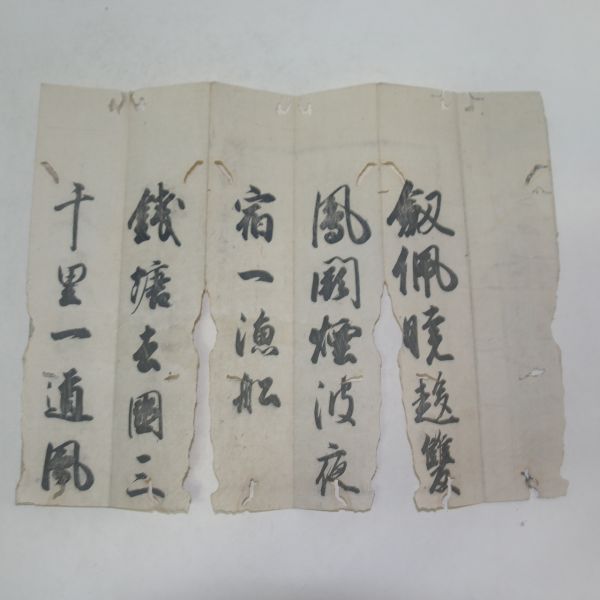 劔佩曉趍雙
鳳闕煙波夜
宿一漁舩
錢塘去國三
千里一道風